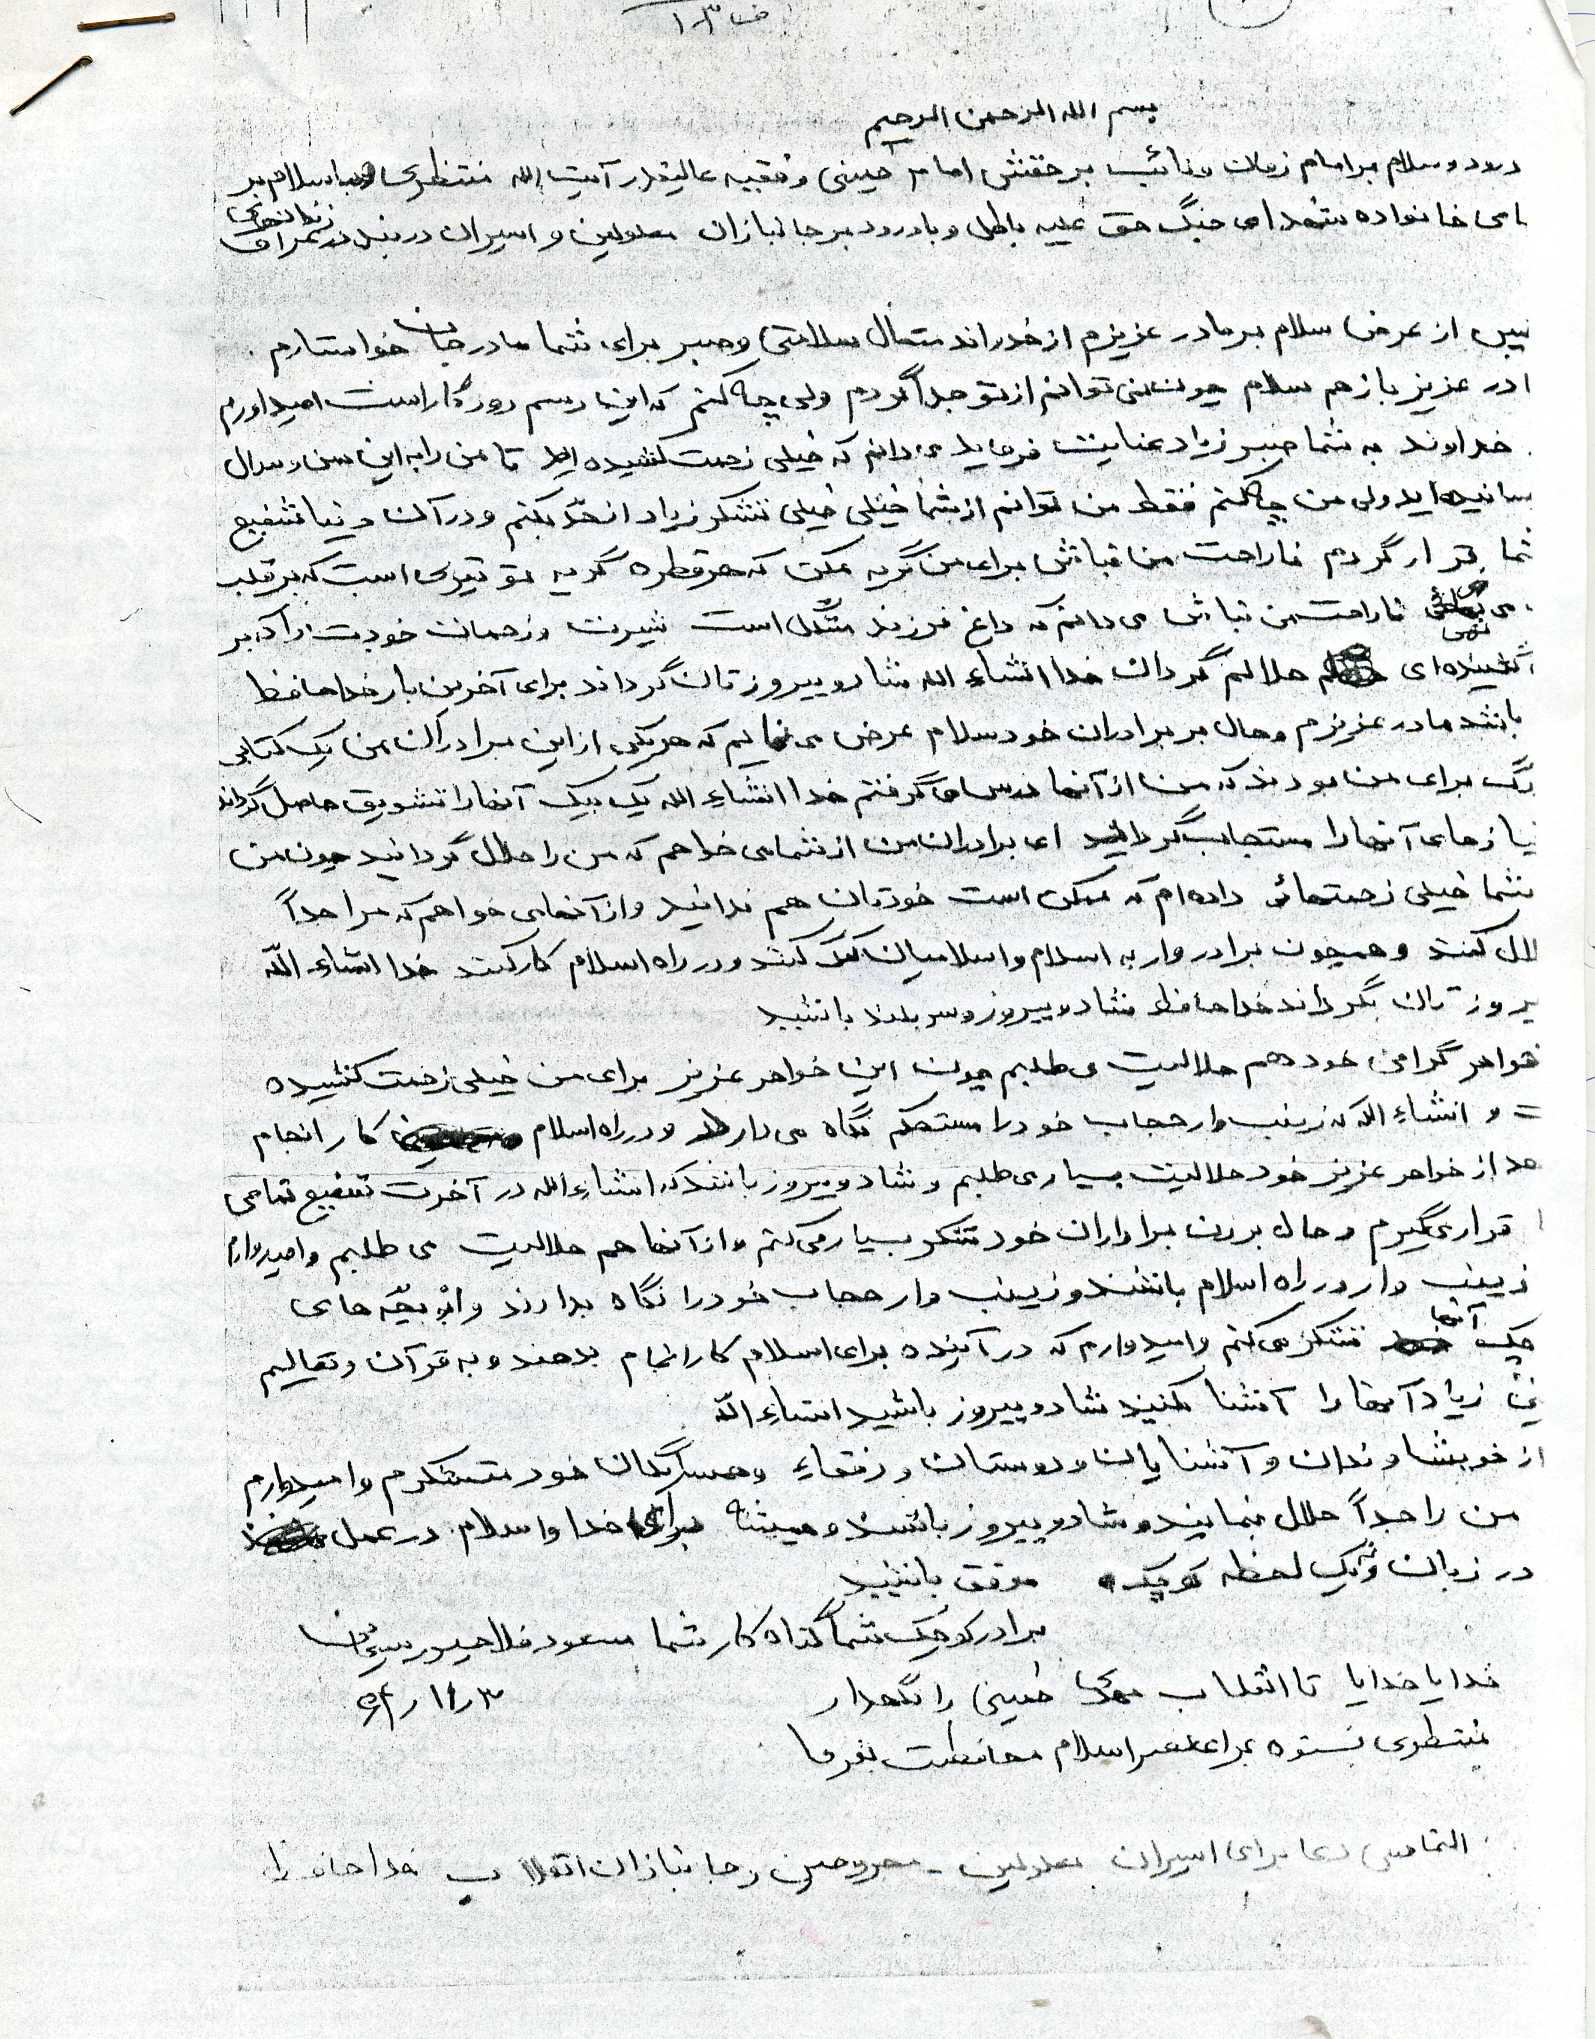 بسم الله الرحمن الرحیم
درود و سلام بر امام زمان و نائب بر حقش امام خمینی و فقیه عالیقدر آیت الله منتظری و با سلام بر
امی خانواده شهدای جنگ حق علیه باطل و با درود بر جانبازان معلولین و اسیران در بند در زندانهای عراق
پس از عرض سلام بر مادر عزیزم از خدراند متعال سلامتی و صبر برای شما مادر جان خواستارم .
ادر عزیز باز هم سلام چون نمی توانم از تو جدا گردم ولی چه کنم که این رسم روزگار است امیداورم
خداوند به شما صبر زیاد عنایت فرماید می دانم که خیلی زحمت کشیده اید تا من را به این سن و سال
سانیده اید ولی من چه کنم فقط من توانم از شما خیلی خیلی تشکر زیاد از حد بکنم و در آن دنیا شفیع
شما قرار گردم ناراحت من نباش برای من گریه مکن که هر قطره گریه تو تیری است که بر قلب
ناراحت من نباش می دانم که داغ فرزند مشکل است شیرت و زحمات خودت را که بر
کشیده ای حلالم گردان خدا انشاء الله شاد و پیروز تان گرداند برای آخرین بار خداحافظ
باشد مادر عزیزم و حال بر برادران خود سلام عرض می نمایم که هر یکی از این برادران من یک کتابی
برای من بودند که من از آنها درس می گرفتم خدا انشاء الله یک بیک آنها را تشویق حاصل گرداند
یازهای آنها را مستجاب گردانید ای برادران من از شما می خواهم که من را حلال گردانید چون من
بشما خیلی زحمتهائی داده ام که ممکن است خودتان هم ندانید و از آنها می خواهم که مرا جداً
لال کنند و همچون برادر وار به اسلام و اسلامیان کمک کنند و در راه اسلام کار کنند خدا انشاء الله
یروز تان بگرداند خداحافظ شاد و پیروز و سربلند باشید
خواهر گرامی خود هم حلالیت می طلبم چون این خواهر عزیز برای من خیلی زحمت کشیده
و انشاء الله که زینب وار حجاب خود را مستحکم نگاه می دارد و در راه اسلام کار انجام
هد از خواهر عزیز خود حلالیت بسیار می طلبم و شاد و پیروز باشند که انشاء الله در آخرت شفیع تمامی
قرار می گیرم و حال بر زن براداران خود تشکر بسیار می کنم و از آنها هم حلالیت می طلبم و امیدوارم
زینب وار در راه اسلام باشند و زینب وار حجاب خود را نگاه بدارند و از بچّه های
چک آنها تشکر می کنم و امیدوارم که در آینده برای اسلام کار انجام بدهند و به قرآن و تعالیم
زیاد آنها را آشنا کنید شاد و پیروز باشید انشاء الله
از خویشاوندان و آشنایان و دوستان و رفقاء و همسایگان خود متشکرم و امیدوارم
من را جداً حلال نمایند و شاد و پیروز باشند و همیشه برای خدا و اسلام در عمل
در زبان و نه یک لحظه کوچک موفق باشید
برادر کوچک شما گناه کار شما مسعود فلاحپور
خدایا خدایا تا انقلاب مهدی خمینی را نگهدار
منتظری نستوه برای اسلام محافظت بفرما
التماس دعا برای اسیران معلولین - مجروحین و جانبازان انقلاب خداحافظ